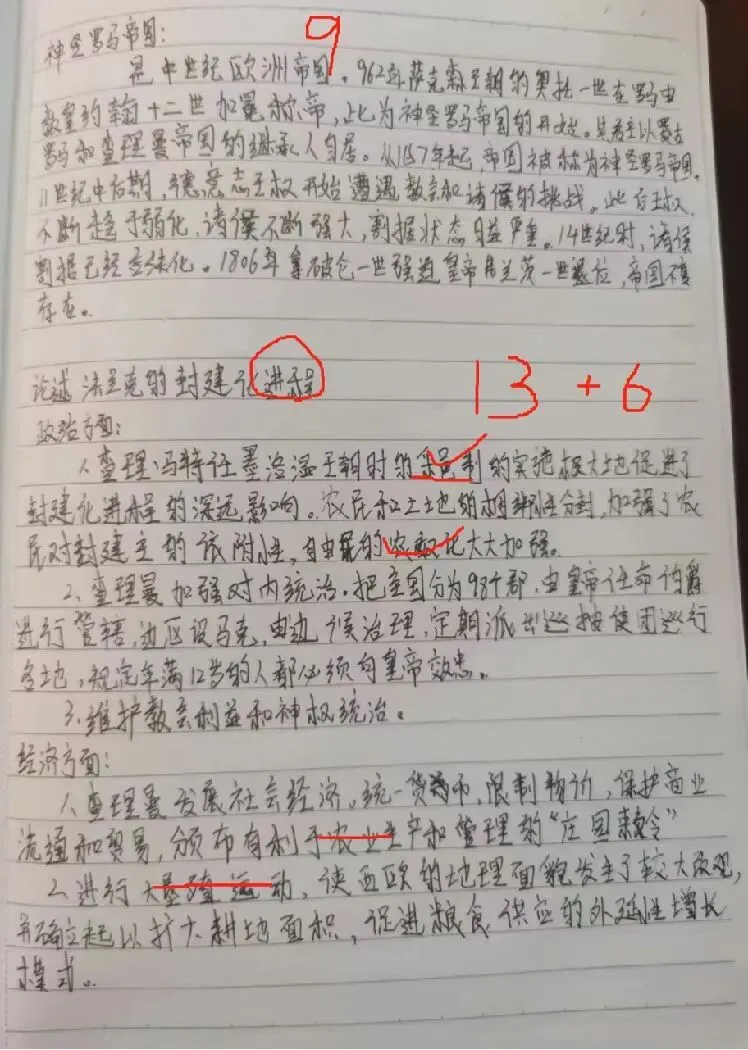 9
神圣罗马帝国:
是中世纪欧洲帝国。962年萨克森王朝的奥托一世在罗马由
教皇约翰十二世加冕称帝,此为神圣罗马帝国的开始。其君主以蒙古
罗马和查理曼帝国的继承人自居。从1157年起,帝国被称为神圣罗马帝国.
11世纪中后期,德意志王权开始遭遇教会和诸侯的挑战。此后王权
不断趋于弱化,诸侯不断强大,割据状态日益严重。14世纪时,诸侯
割据已经合法化。1806年拿破仑一世强迫皇帝弗兰茨一世退位,帝国不复
存在。
论述法兰克的封建化进程
13 + 6
政治方面:
1.查理·马特任墨洛温王朝时的采邑制的实施极大地促进了
封建化进程的深远影响。农民和土地的相绑性分封,加强了农
民对封建主的依附性,自由民的农奴化大大加强。
2.查理曼加强对内统治。把全国分为98个郡,由皇帝任命伯爵
进行管辖,边区设马克,由边侯治理,定期派出巡按使团巡行
各地,规定年满12岁的人都必须向皇帝效忠。
3.维护教会利益和神权统治。
经济方面:
1.查理曼发展社会经济。统一货币,限制物价,保护商业
流通和贸易,颁布有利于农业生产和管理的“庄园敕令”
2.进行大垦殖运动,使西欧的地理面貌发生了较大改观,
并确立起以扩大耕地面积,促进粮食供应的外延性增长
模式。